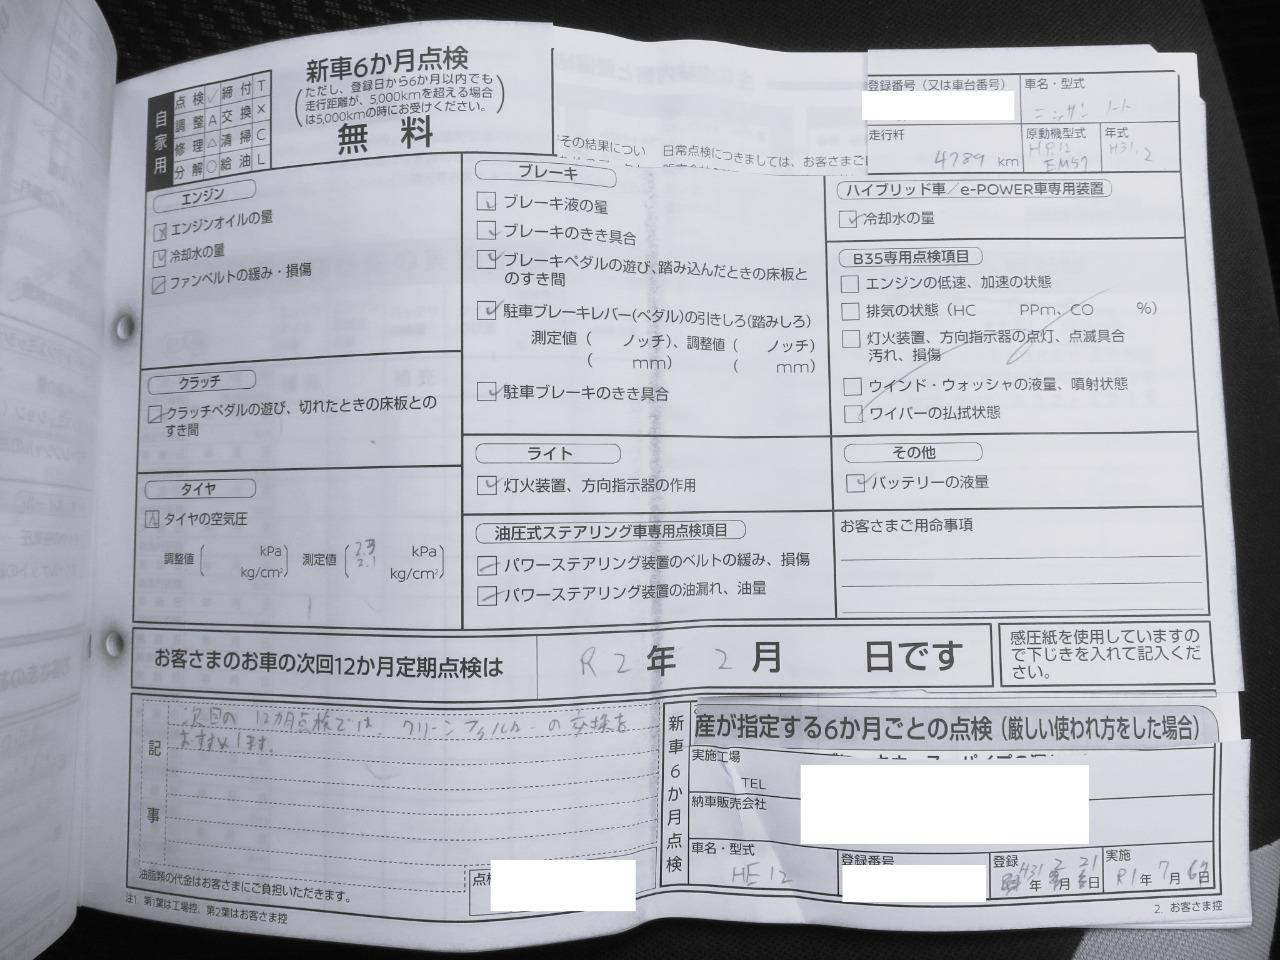 自家用
点検 ✓ 締付 T
調整 A 交換 X
修理 △ 清掃 C
分解 ○ 給油 L
新車6か月点検
(ただし、登録日から6か月以内でも
走行距離が、5,000kmを超える場合
は5,000kmの時にお受けください。)
無料
その結果につい 日常点検につきましては、お客さまご
登録番号(又は車台番号)
車名・型式
ニッサン ノート
走行粁
4789 km
原動機型式
HR12
EM57
年式
H31.2
エンジン
エンジンオイルの量
冷却水の量
ファンベルトの緩み・損傷
クラッチ
クラッチペダルの遊び、切れたときの床板との
すき間
タイヤ
A タイヤの空気圧
調整値( kPa kg/cm²) 測定値(2.3 kPa 2.1 kg/cm²)
ブレーキ
ブレーキ液の量
ブレーキのきき具合
ブレーキペダルの遊び、踏み込んだときの床板と
のすき間
駐車ブレーキレバー(ペダル)の引きしろ(踏みしろ)
測定値( ノッチ)、調整値( ノッチ)
( mm) ( mm)
駐車ブレーキのきき具合
ライト
灯火装置、方向指示器の作用
油圧式ステアリング車専用点検項目
パワーステアリング装置のベルトの緩み、損傷
パワーステアリング装置の油漏れ、油量
ハイブリッド車/e-POWER車専用装置
冷却水の量
B35専用点検項目
エンジンの低速、加速の状態
排気の状態(HC PPm、CO %)
灯火装置、方向指示器の点灯、点滅具合
汚れ、損傷
ウインド・ウォッシャの液量、噴射状態
ワイパーの払拭状態
その他
バッテリーの液量
お客さまご用命事項
お客さまのお車の次回12か月定期点検は R2年 2月 日です
感圧紙を使用していますの
で下じきを入れて記入くだ
さい。
記事
次回の12カ月点検では、クリーンフィルターの交換を
おすすめします。
油脂類の代金はお客さまにご負担いただきます。
点検
新車6か月点検
産が指定する6か月ごとの点検(厳しい使われ方をした場合)
実施工場
TEL
納車販売会社
車名・型式
HE12
登録番号
登録
H31年2月21日
実施
R1年7月6日
注1. 第1葉は工場控、第2葉はお客さま控
2. お客さま控